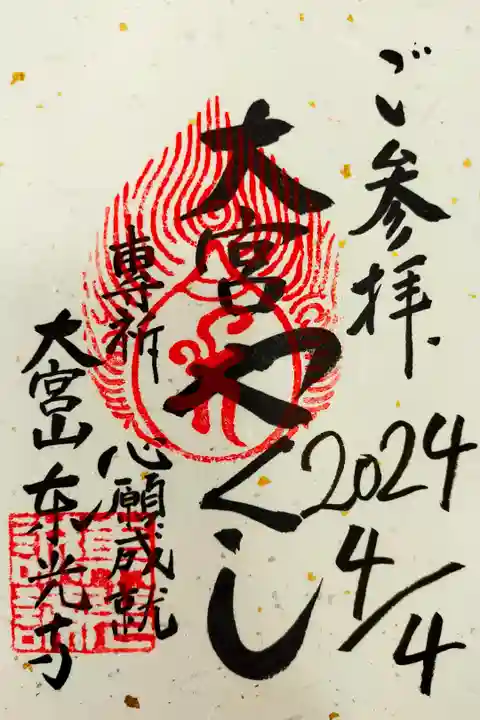 ご参拝
2024
4/4
大宮やくし
専祈
心願成就
大宮山東光寺